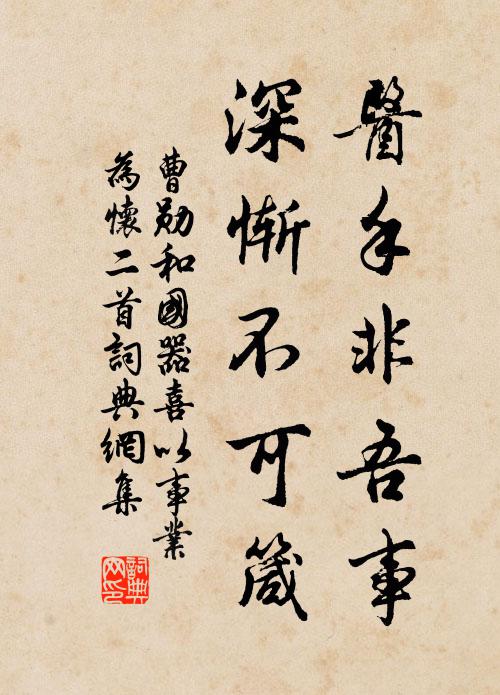 醫手非吾事
深慚不可箴
曹勛和國器喜以事業
為懷二首詞典網集
詞典
网印